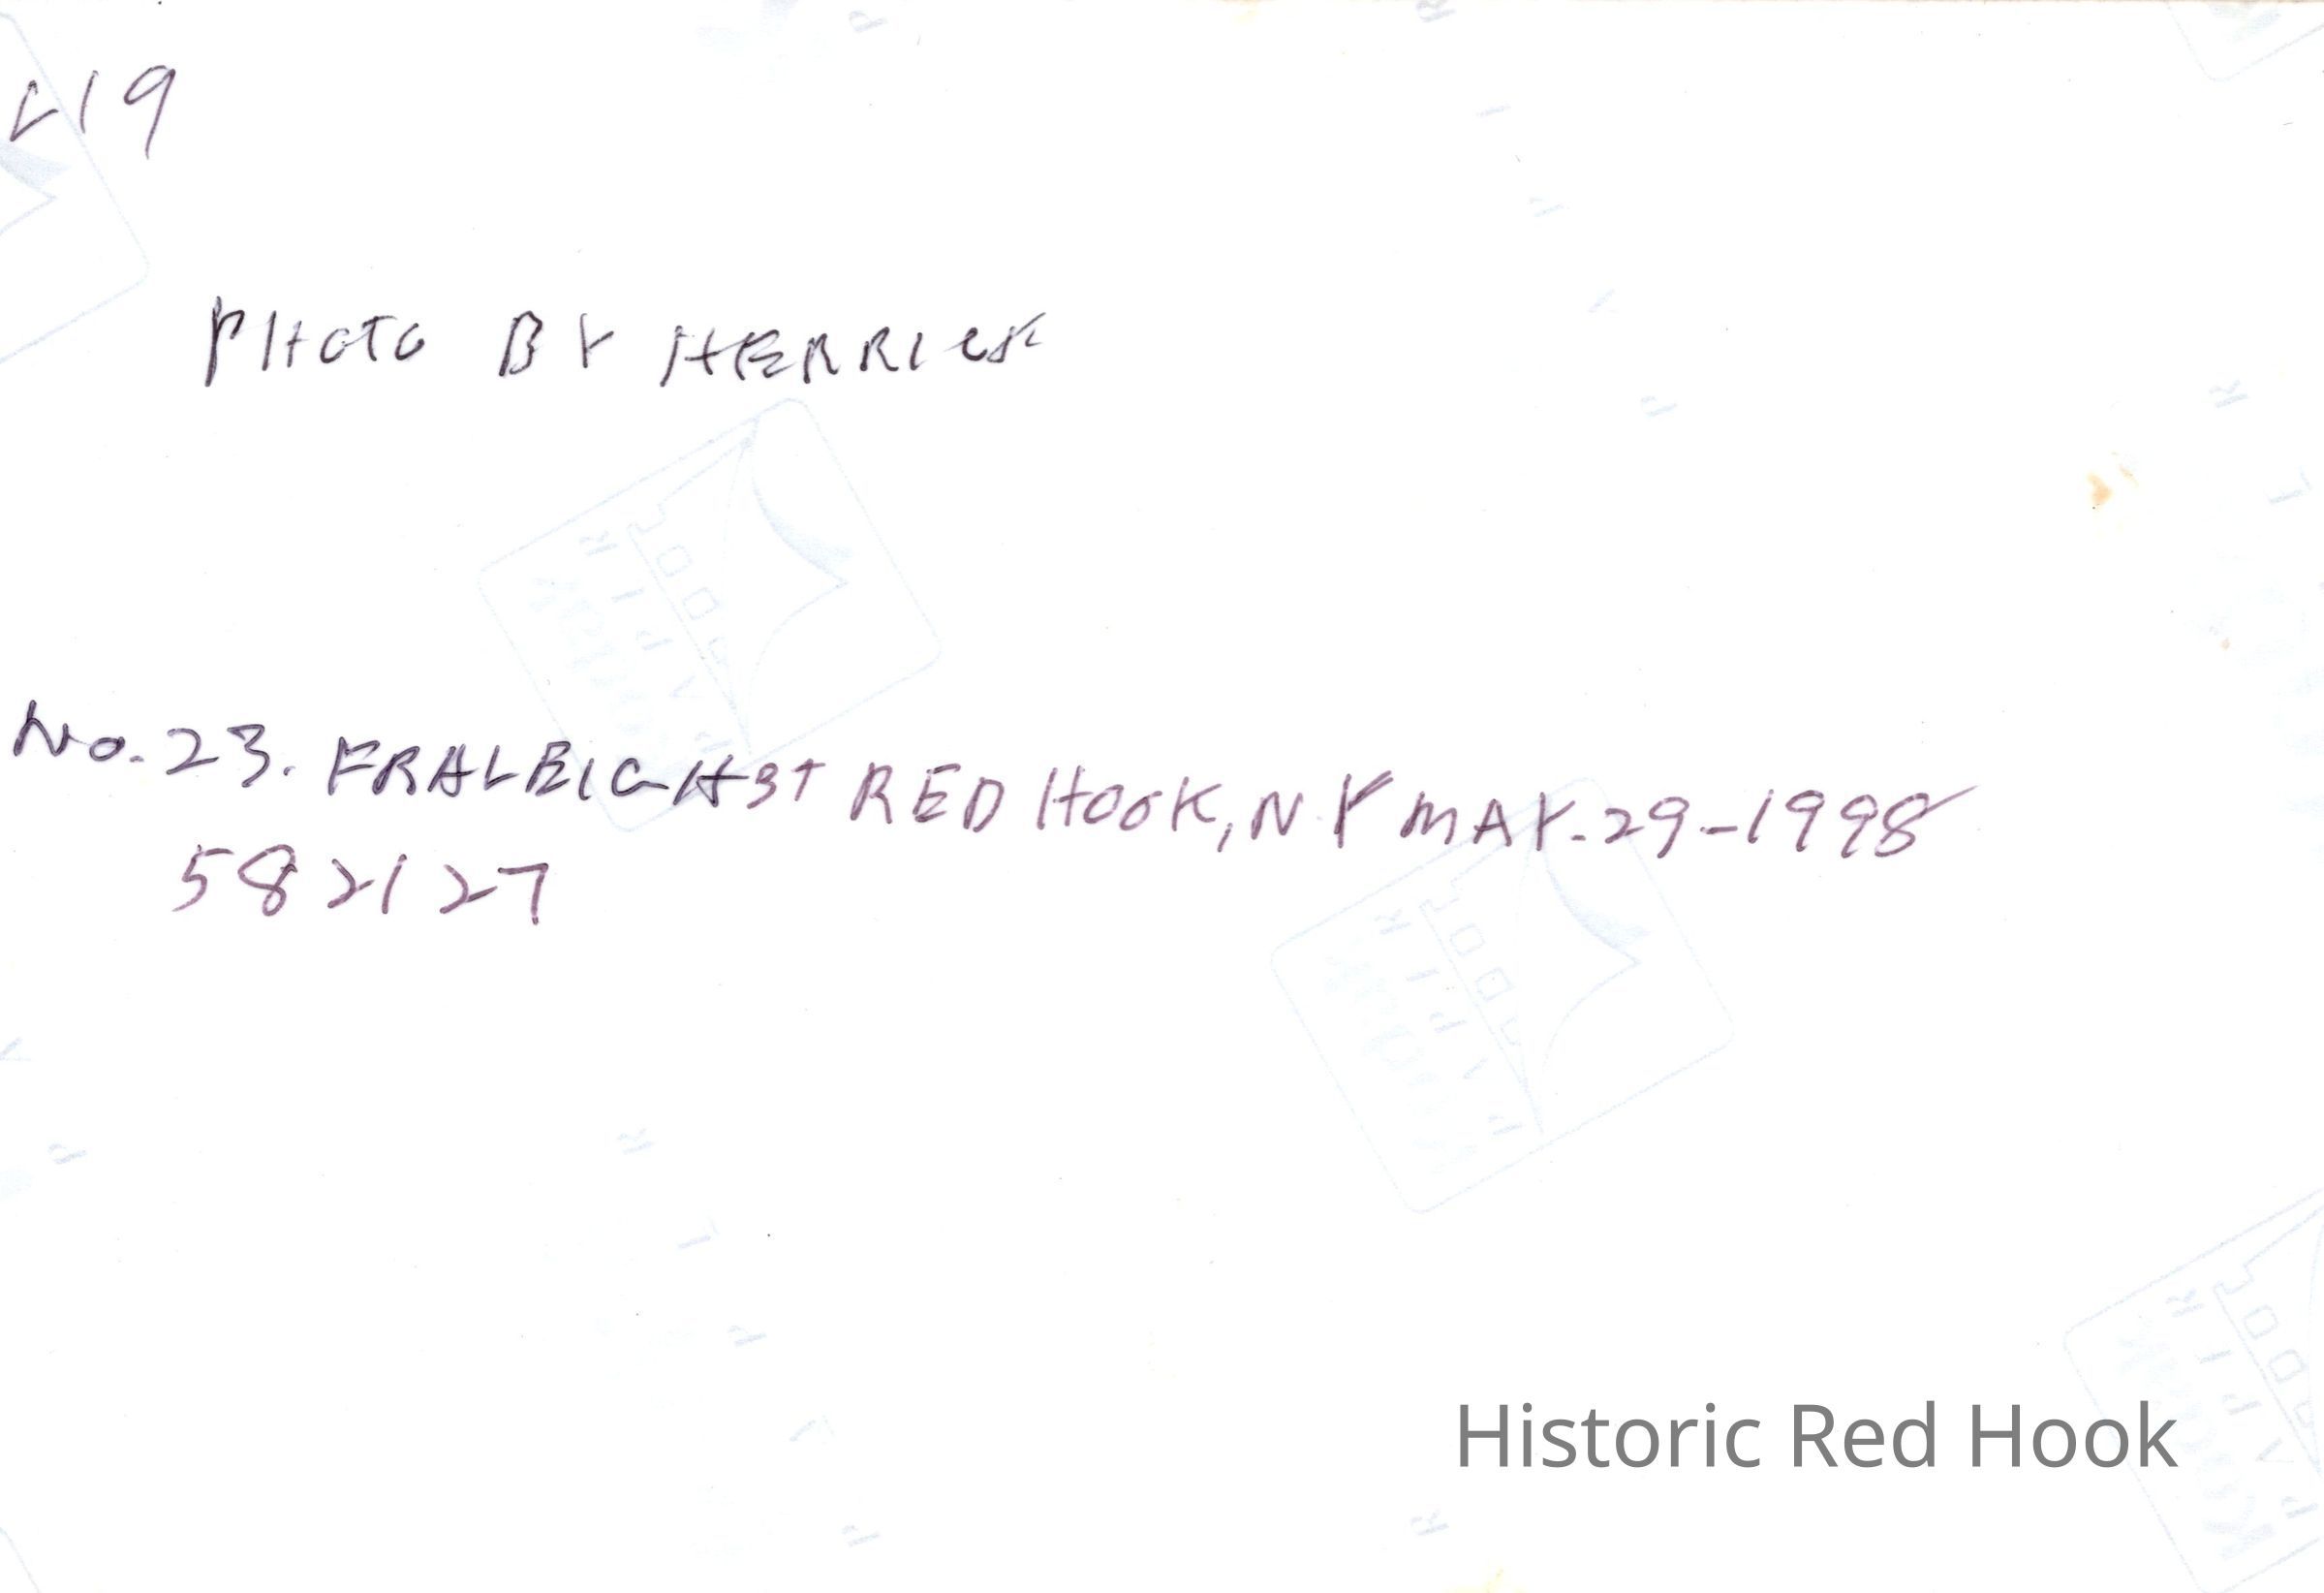 L19
PHOTO BY HERRICK
No. 23. FRALEIGH ST RED HOOK, N.Y MAY. 29-1998
582127
Historic Red Hook